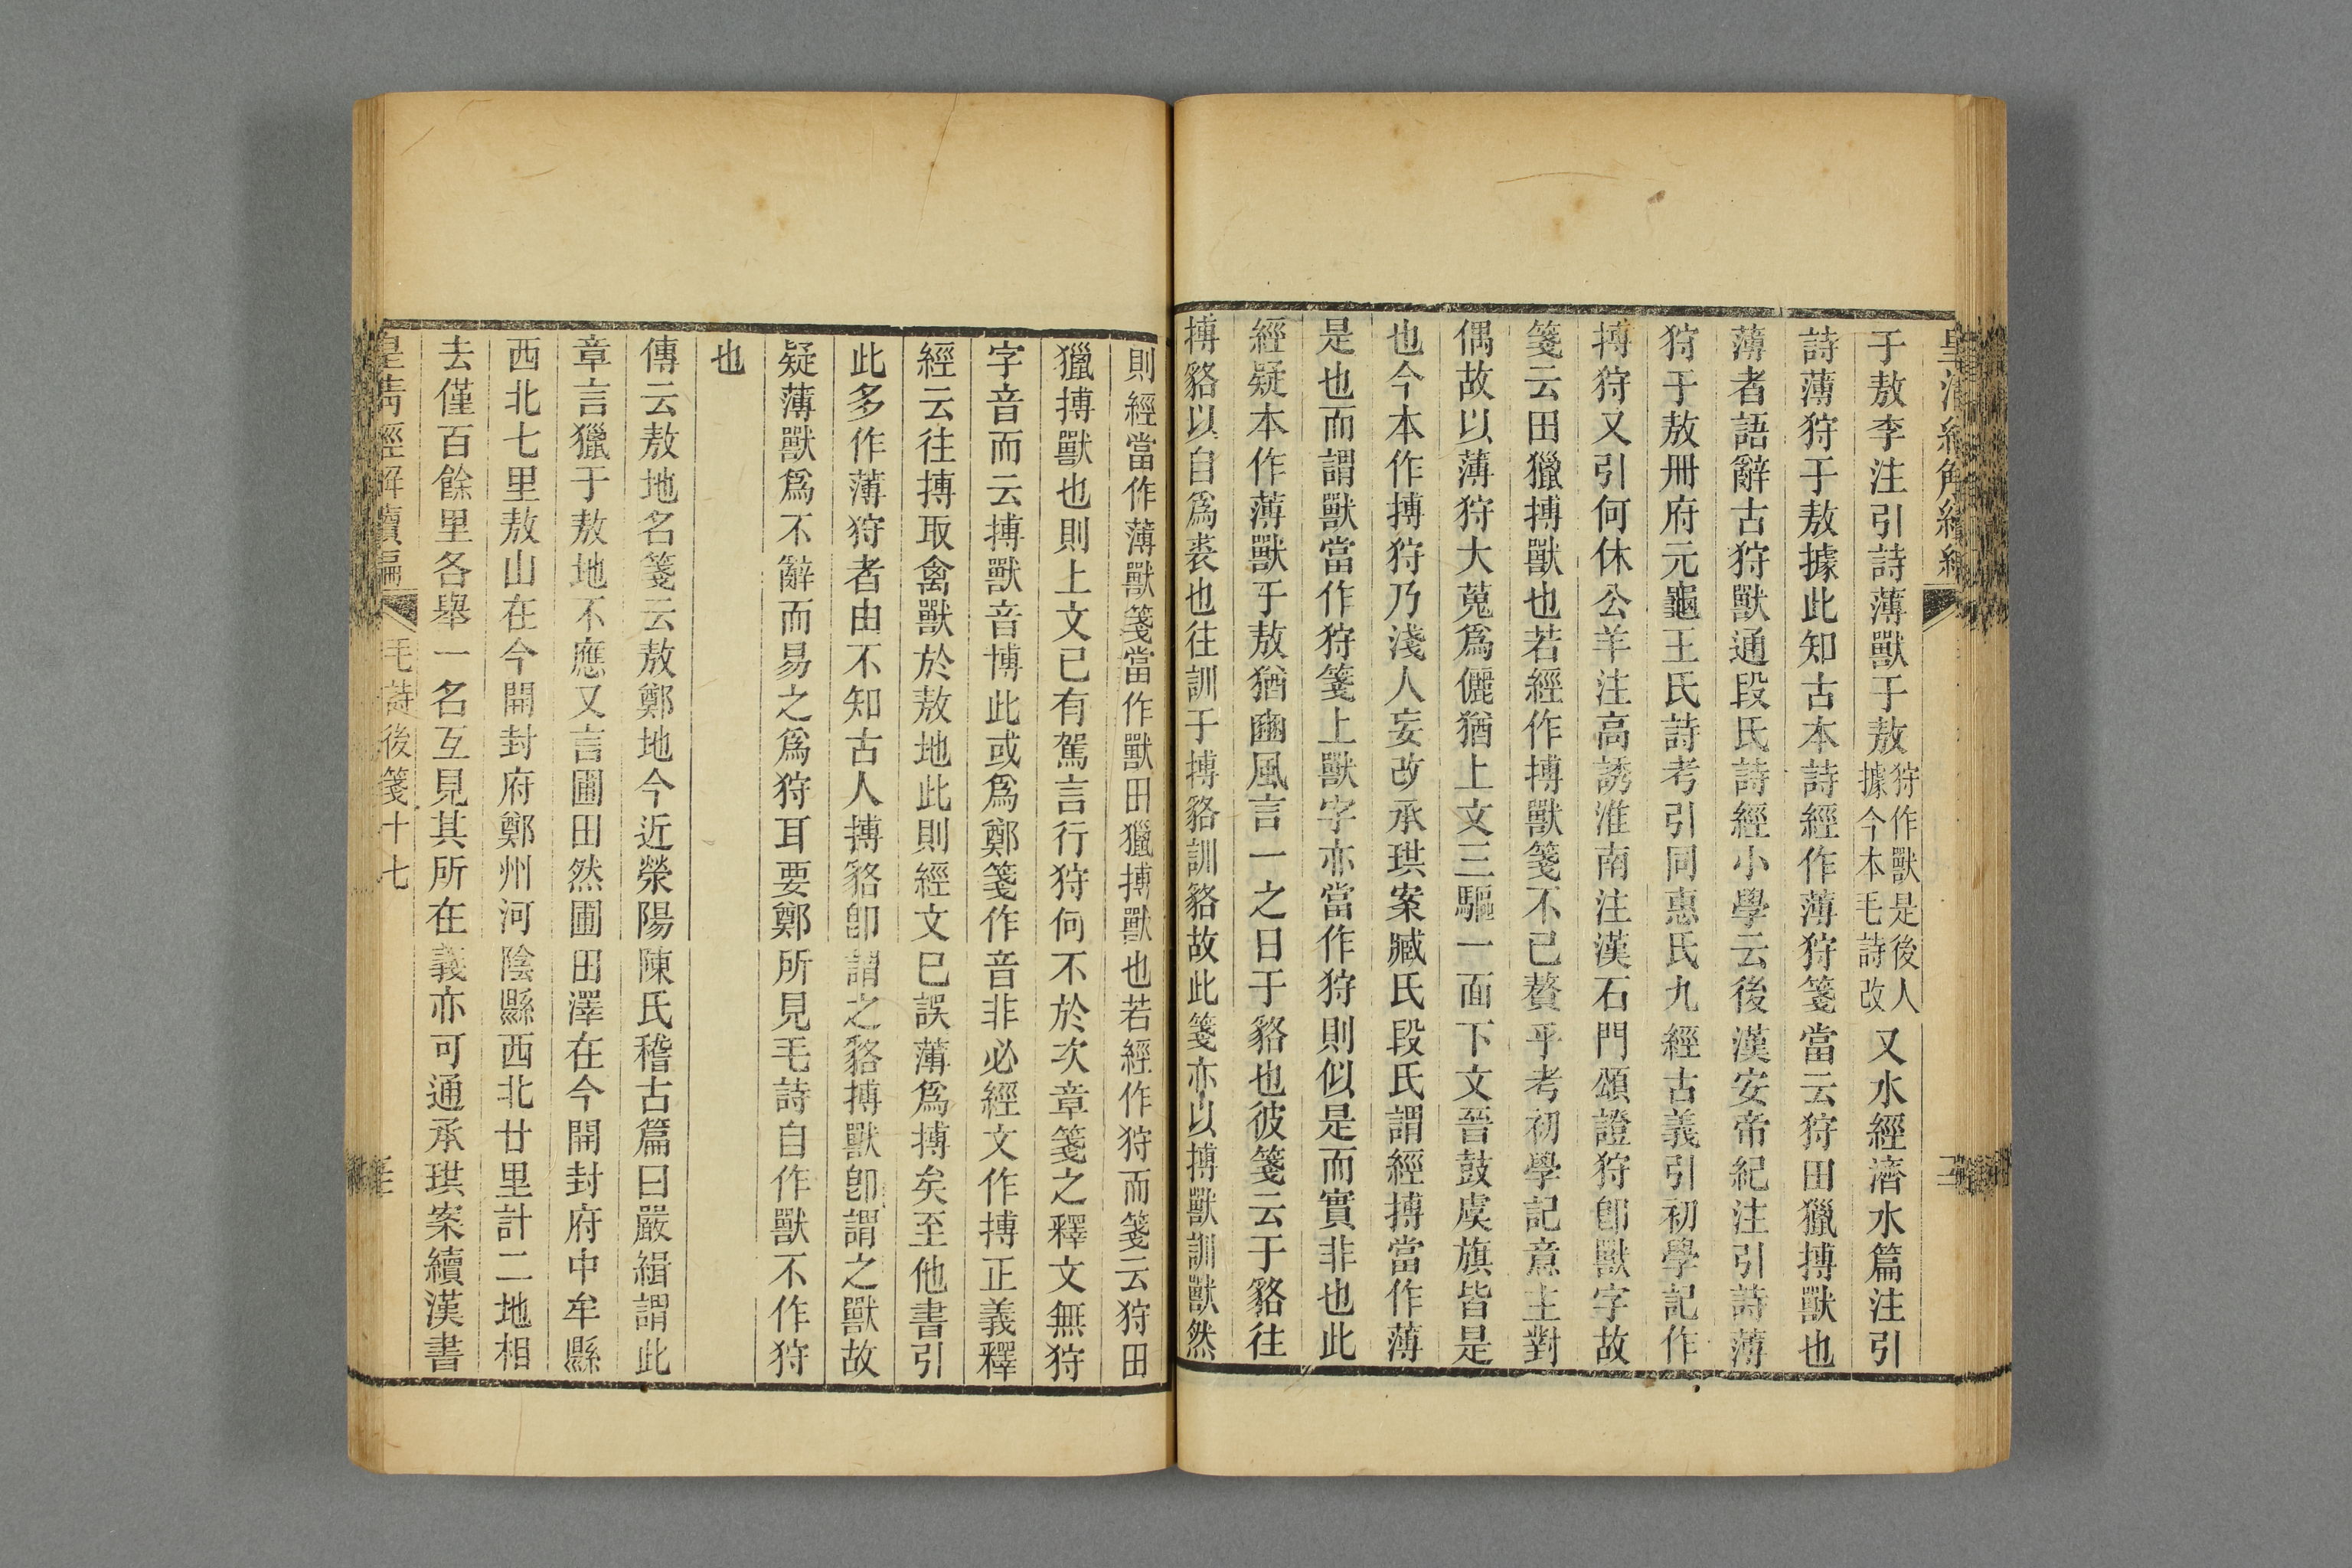 于敖李注引詩薄獸于敖狩作獸是後人據今本毛詩改又水經濟水篇注引
詩薄狩于敖據此知古本詩經作薄狩箋當云狩田獵搏獸也
薄者語辭古狩獸通段氏詩經小學云後漢安帝紀注引詩薄
狩于敖冊府元龜王氏詩考引同惠氏九經古義引初學記作
搏狩又引何休公羊注高誘淮南注漢石門頌證狩卽獸字故
箋云田獵搏獸也若經作搏獸箋不已贅乎考初學記意主對
偶故以薄狩大蒐爲儷猶上文三驅一面下文晉鼓虞旗皆是
也今本作搏狩乃淺人妄改承珙案臧氏段氏謂經搏當作薄
是也而謂獸當作狩箋上獸字亦當作狩則似是而實非也此
經疑本作薄獸于敖猶豳風言一之日于貉也彼箋云于貉往
搏貉以自爲裘也往訓于搏貉訓貉故此箋亦以搏獸訓獸然
則經當作薄獸箋當作獸田獵搏獸也若經作狩而箋云狩田
獵搏獸也則上文已有駕言行狩何不於次章箋之釋文無狩
字音而云搏獸音博此或爲鄭箋作音非必經文作搏正義釋
經云往搏取禽獸於敖地此則經文已誤薄爲搏矣至他書引
此多作薄狩者由不知古人搏貉卽謂之貉搏獸卽謂之獸故
疑薄獸爲不辭而易之爲狩耳要鄭所見毛詩自作獸不作狩
也
傳云敖地名箋云敖鄭地今近滎陽陳氏稽古篇曰嚴緝謂此
章言獵于敖地不應又言圃田然圃田澤在今開封府中牟縣
西北七里敖山在今開封府鄭州河陰縣西北廿里計二地相
去僅百餘里各舉一名互見其所在義亦可通承珙案續漢書
皇清經解續編 毛詩後箋十七